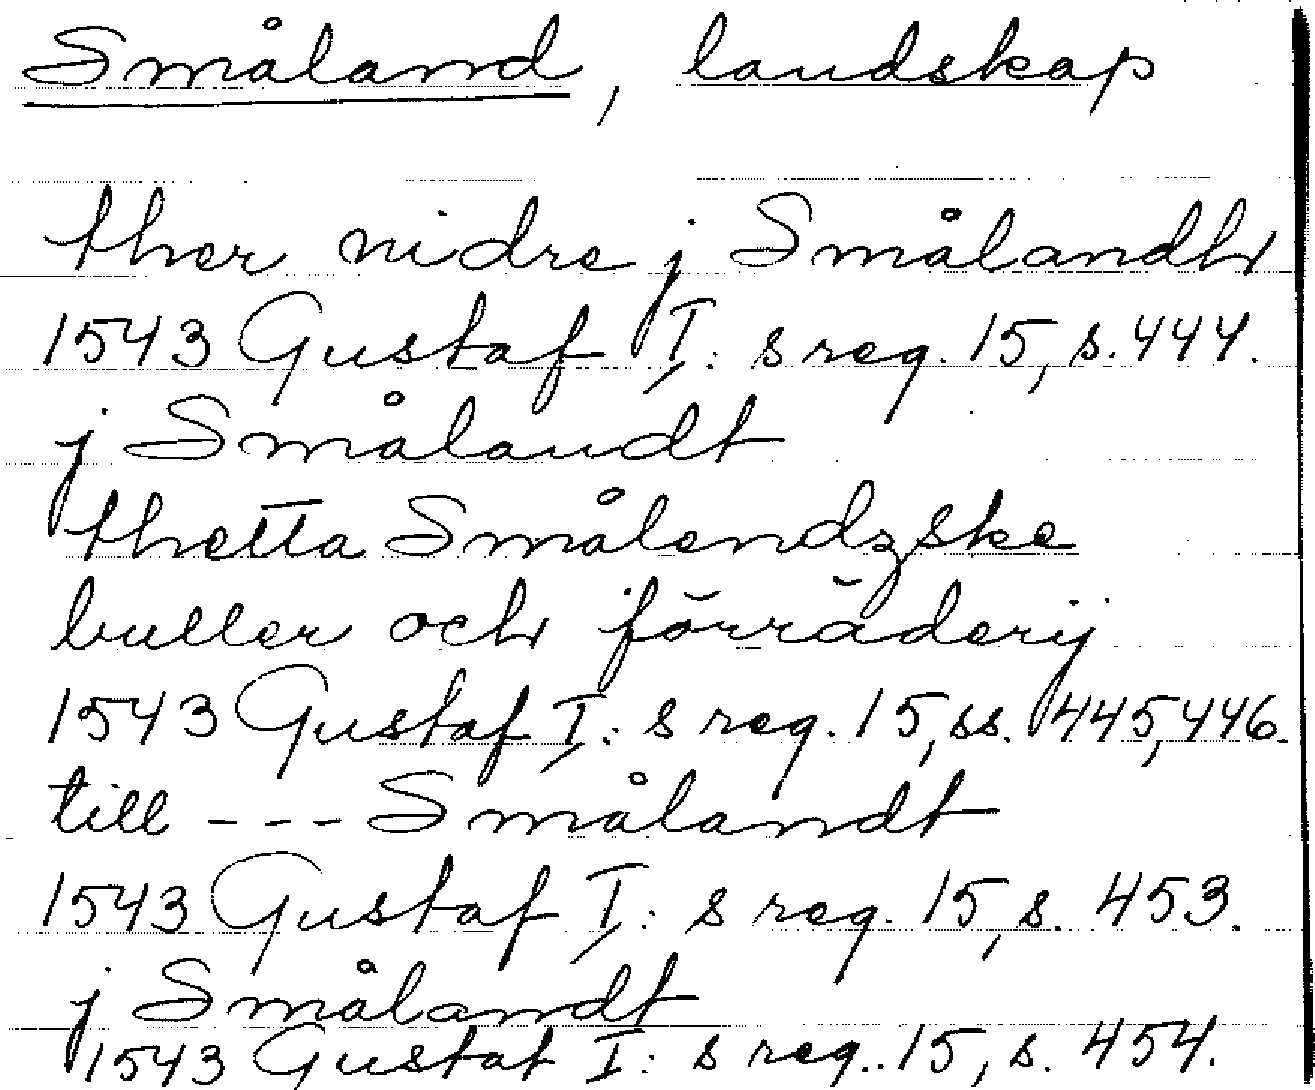 Småland, landskap
ther nidre j Smålandh
1543 Gustaf I:s reg. 15, s. 444.
j Smålandt
thetta Smålendzske
buller och förräderij
1543 Gustaf I:s reg. 15, ss. 445, 446.
till --- Smålandt
1543 Gustaf I:s reg. 15, s. 453.
j Smålandt
1543 Gustaf I:s reg. 15, s. 454.